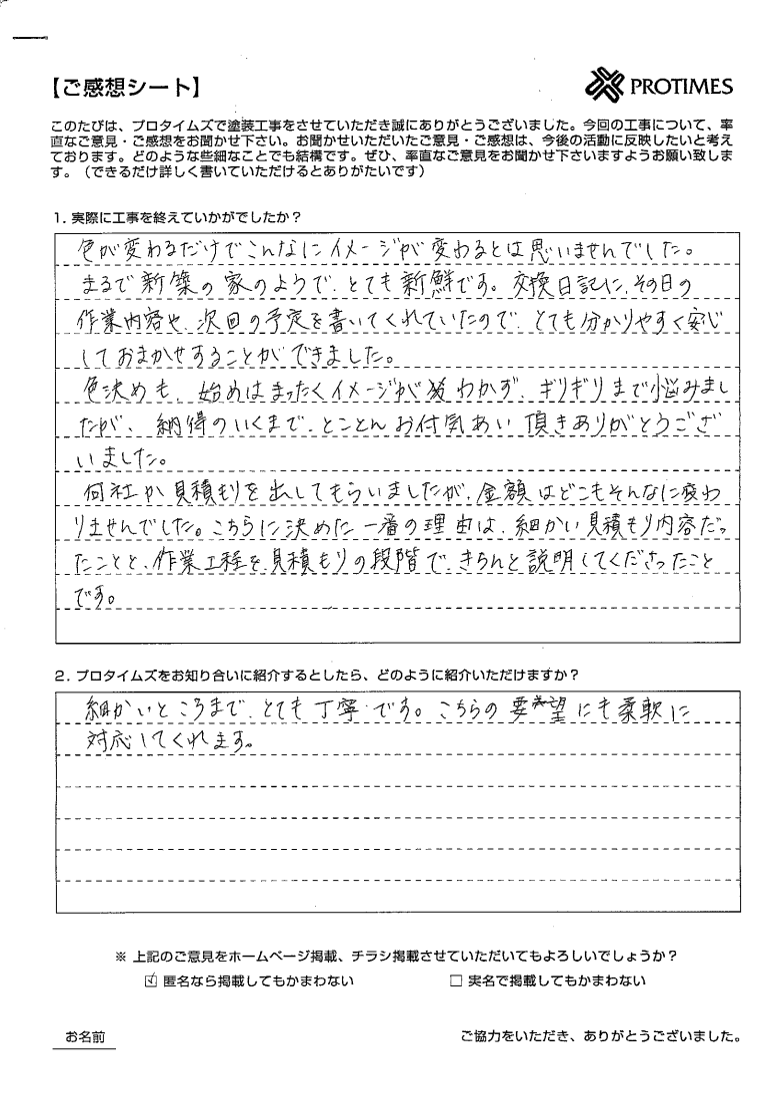 【ご感想シート】
PROTIMES
このたびは、プロタイムズで塗装工事をさせていただき誠にありがとうございました。今回の工事について、率
直なご意見・ご感想をお聞かせ下さい。お聞かせいただいたご意見・ご感想は、今後の活動に反映したいと考え
ております。どのような些細なことでも結構です。ぜひ、率直なご意見をお聞かせ下さいますようお願い致しま
す。（できるだけ詳しく書いていただけるとありがたいです）
1. 実際に工事を終えていかがでしたか？
色が変わるだけでこんなにイメージが変わるとは思いませんでした。
まるで新築の家のようで、とても新鮮です。交換日記に、その日の
作業内容や、次回の予定を書いてくれていたので、とても分かりやすく安心
しておまかせすることができました。
色決めも、始めはまったくイメージがわかず、ギリギリまで悩みまし
たが、納得のいくまで、とことんお付気あい頂きありがとうござ
いました。
何社か見積もりを出してもらいましたが、金額はどこもそんなに変わ
りませんでした。こちらに決めた一番の理由は、細かい見積もり内容だっ
たことと、作業工程を見積もりの段階で、きちんと説明してくださったこと
です。
2. プロタイムズをお知り合いに紹介するとしたら、どのように紹介いただけますか？
細かいところまで、とても丁寧です。こちらの要希望にも柔軟に
対応してくれます。
※ 上記のご意見をホームページ掲載、チラシ掲載させていただいてもよろしいでしょうか？
☑ 匿名なら掲載してもかまわない　□ 実名で掲載してもかまわない
お名前　ご協力をいただき、ありがとうございました。